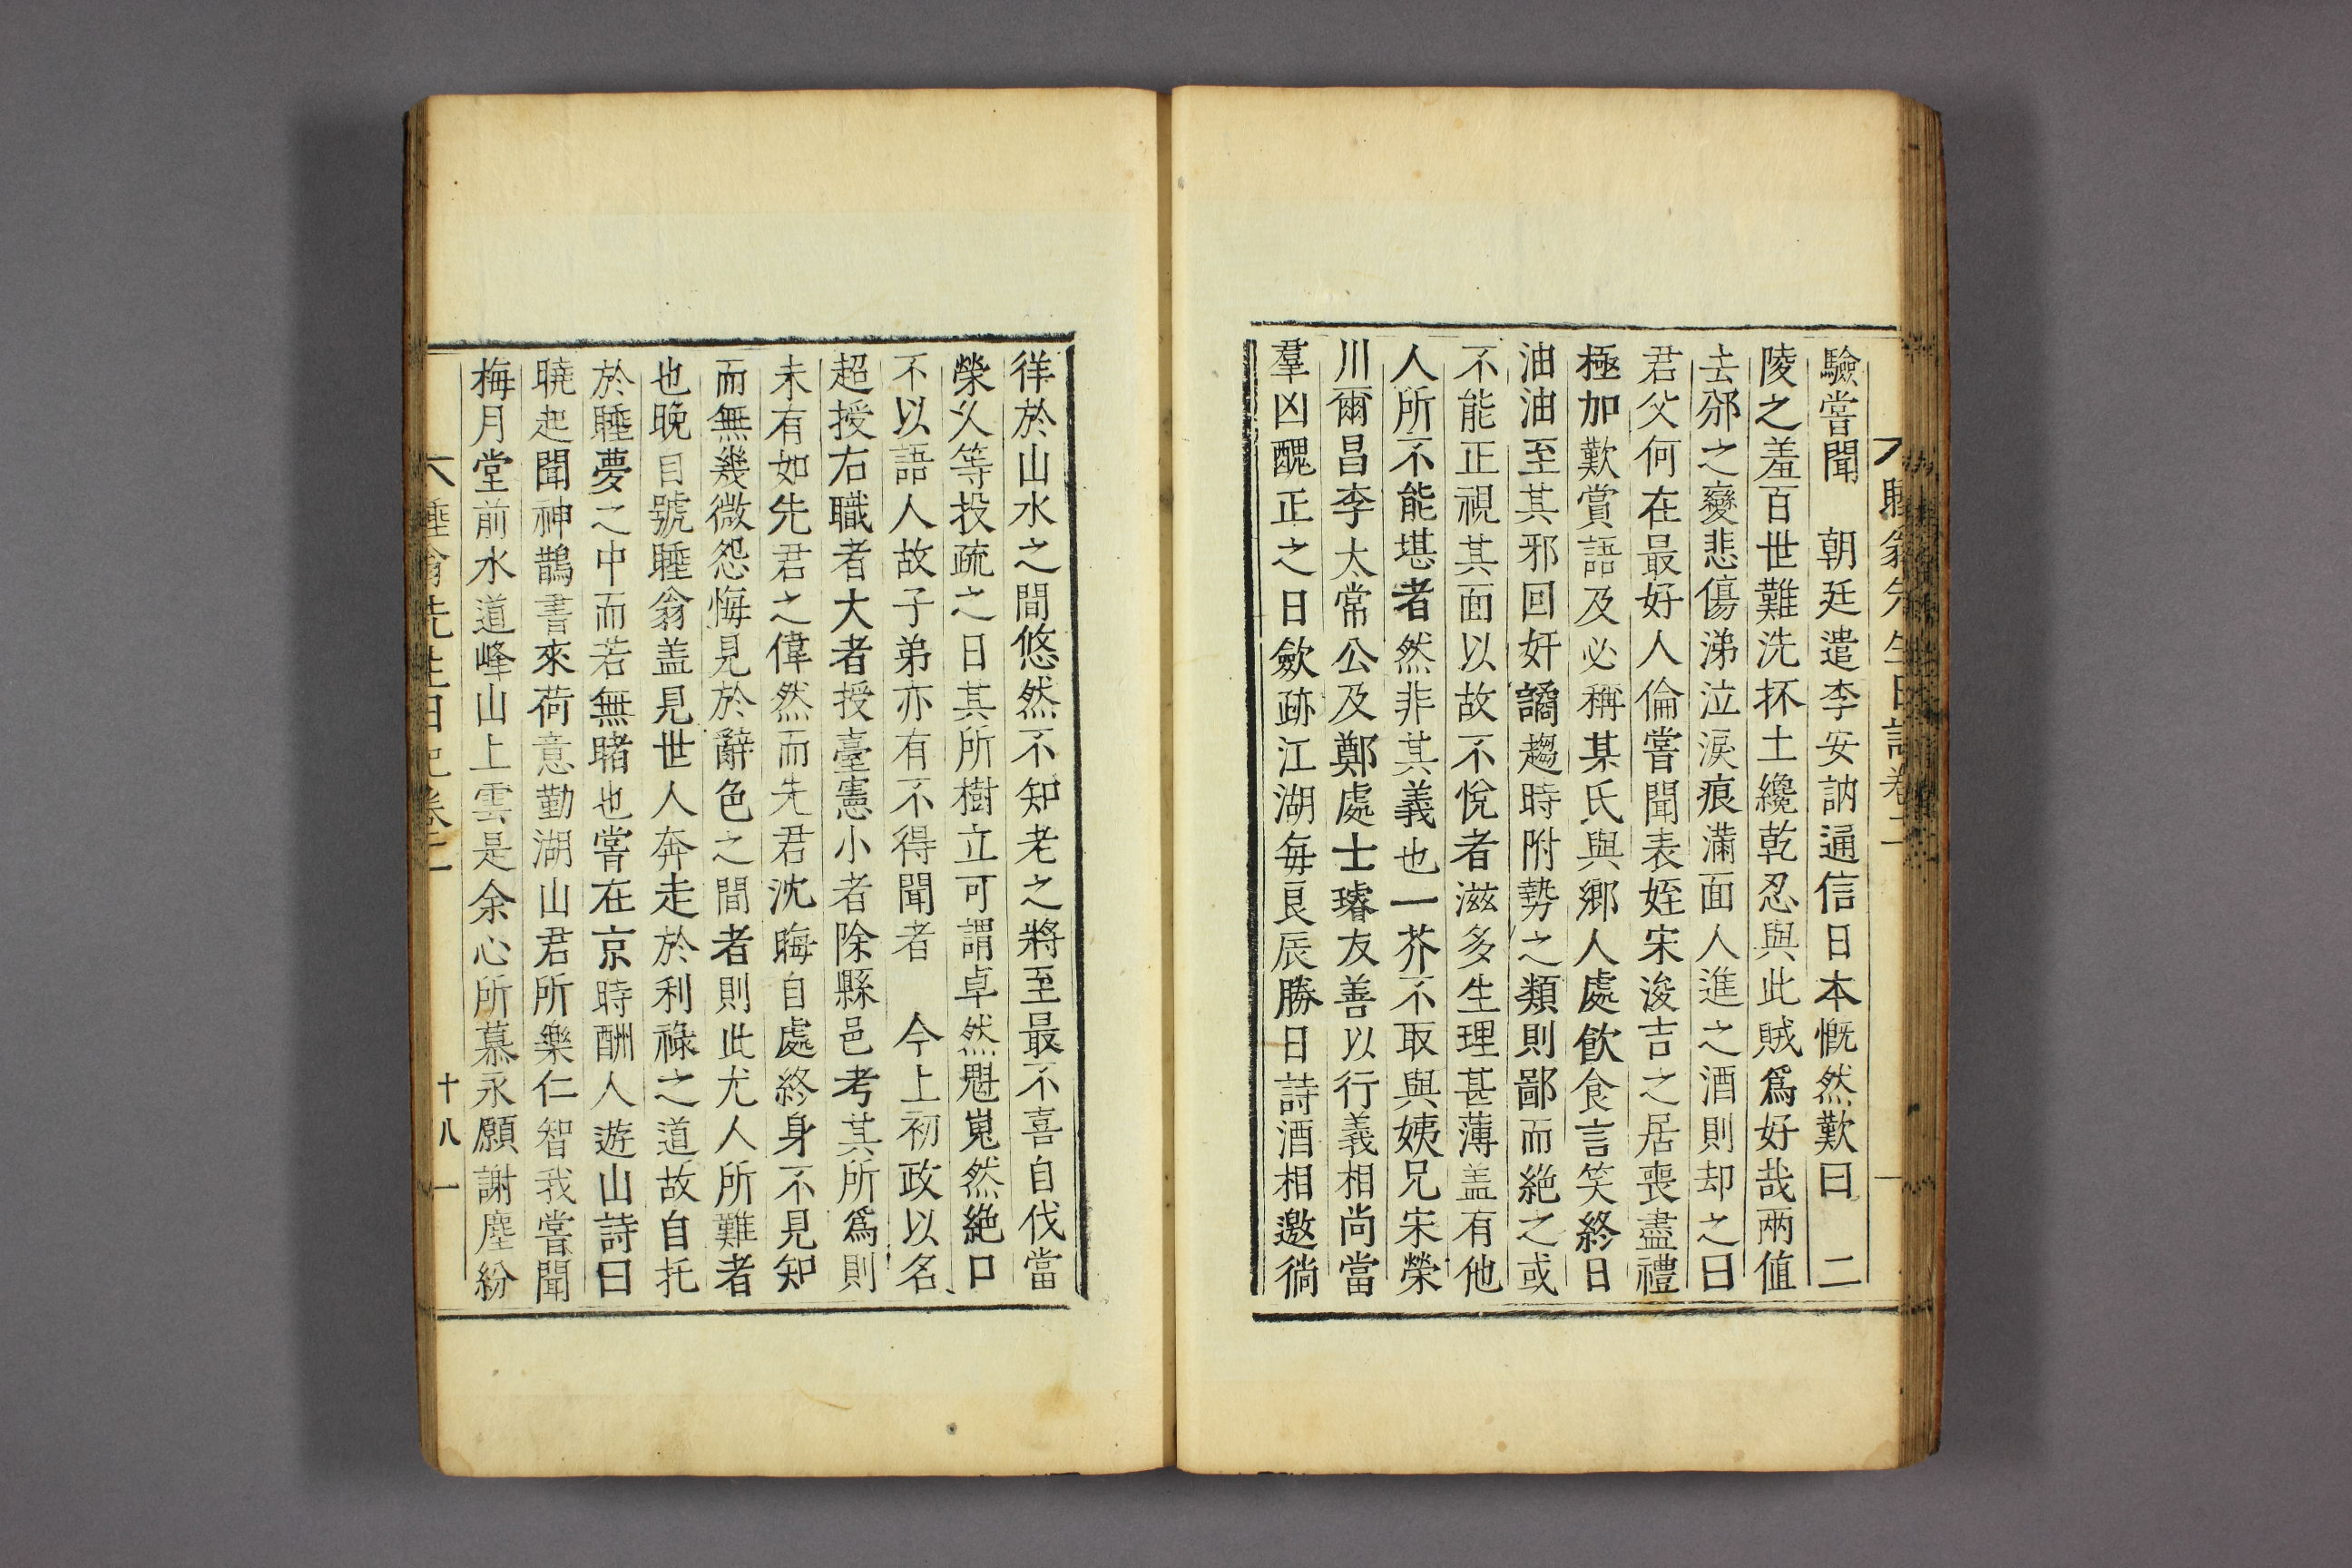 睡翁先生日記卷二
驗嘗聞　朝廷遣李安訥通信日本慨然歎曰　二
陵之羞百世難洗抔土纔乾忍與此賊爲好哉兩值
去邠之變悲傷涕泣淚痕滿面人進之酒則却之曰
君父何在最好人倫嘗聞表姪宋浚吉之居喪盡禮
極加歎賞語及必稱某氏與鄉人處飮食言笑終日
油油至其邪回奸譎趨時附勢之類則鄙而絶之或
不能正視其面以故不悅者滋多生理甚薄盖有他
人所不能堪者然非其義也一芥不取與姨兄宋榮
川爾昌李太常公及鄭處士璿友善以行義相尚當
羣凶醜正之日斂跡江湖每良辰勝日詩酒相邀徜
徉於山水之間悠然不知老之將至最不喜自伐當
榮乂等投疏之日其所樹立可謂卓然嵬然絶口
不以語人故子弟亦有不得聞者　今上初政以名
超授右職者大者授臺憲小者除縣邑考其所爲則
未有如先君之偉然而先君沈晦自處終身不見知
而無幾微怨悔見於辭色之間者則此尤人所難者
也晚自號睡翁盖見世人奔走於利祿之道故自托
於睡夢之中而若無睹也嘗在京時酬人遊山詩曰
曉起聞神鵲書來荷意勤湖山君所樂仁智我嘗聞
梅月堂前水道峰山上雲是余心所慕永願謝塵紛
睡翁先生日記卷二　十八